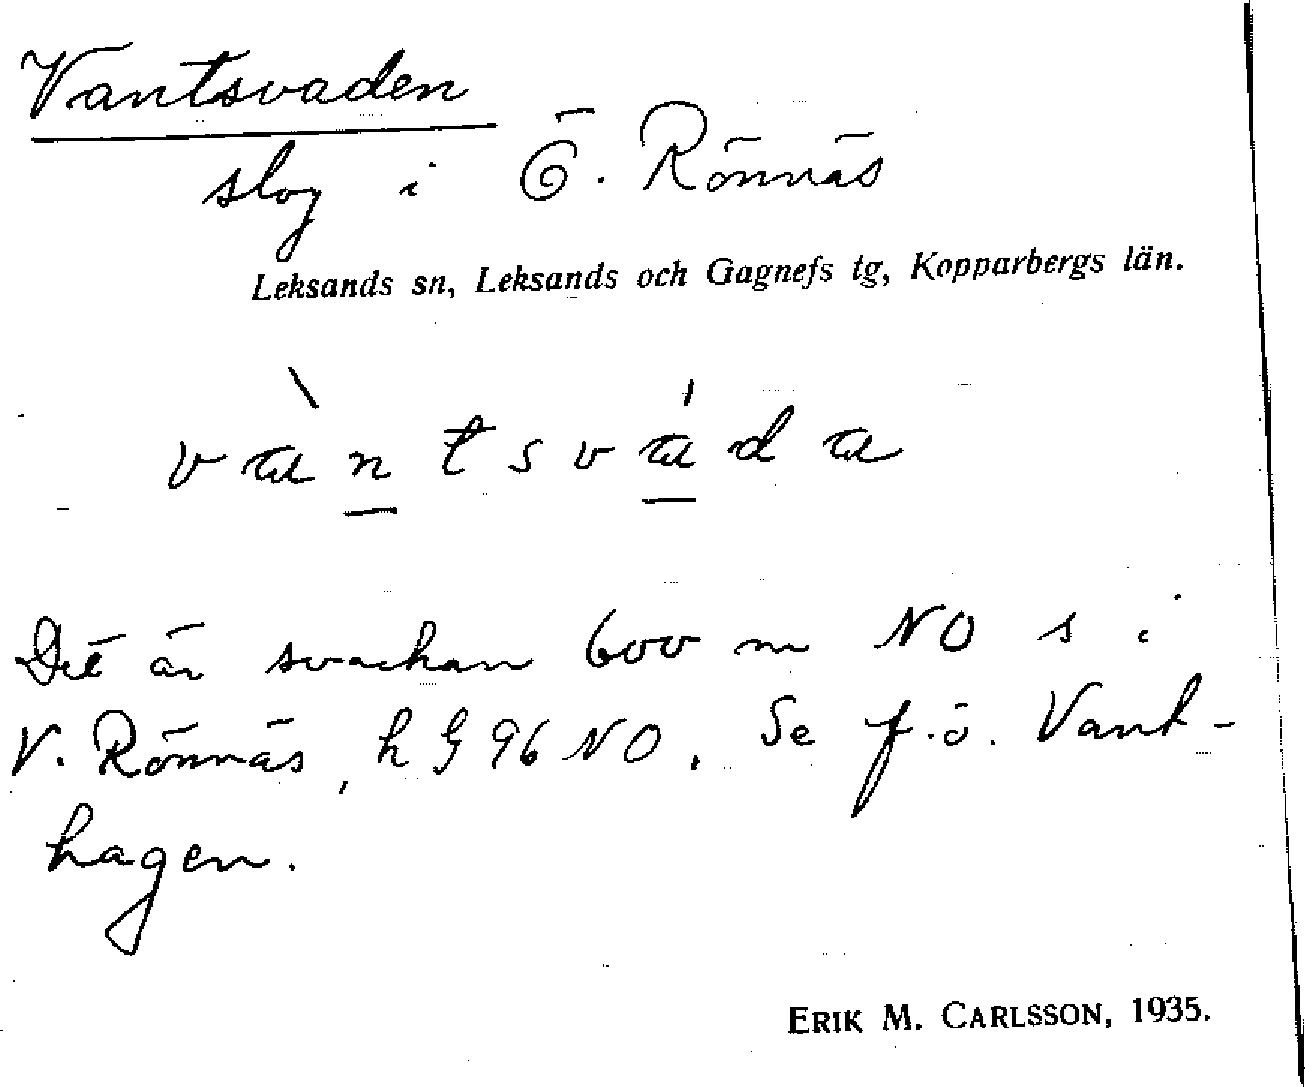 Vantsvaden
slog i Ö. Rönnäs
Leksands sn, Leksands och Gagnefs tg, Kopparbergs län.
vàntsváda
Det är svackan 600 m NO s i
V. Rönnäs, h G 96 NO. Se f.ö. Vant-
hagen.
ERIK M. CARLSSON, 1935.